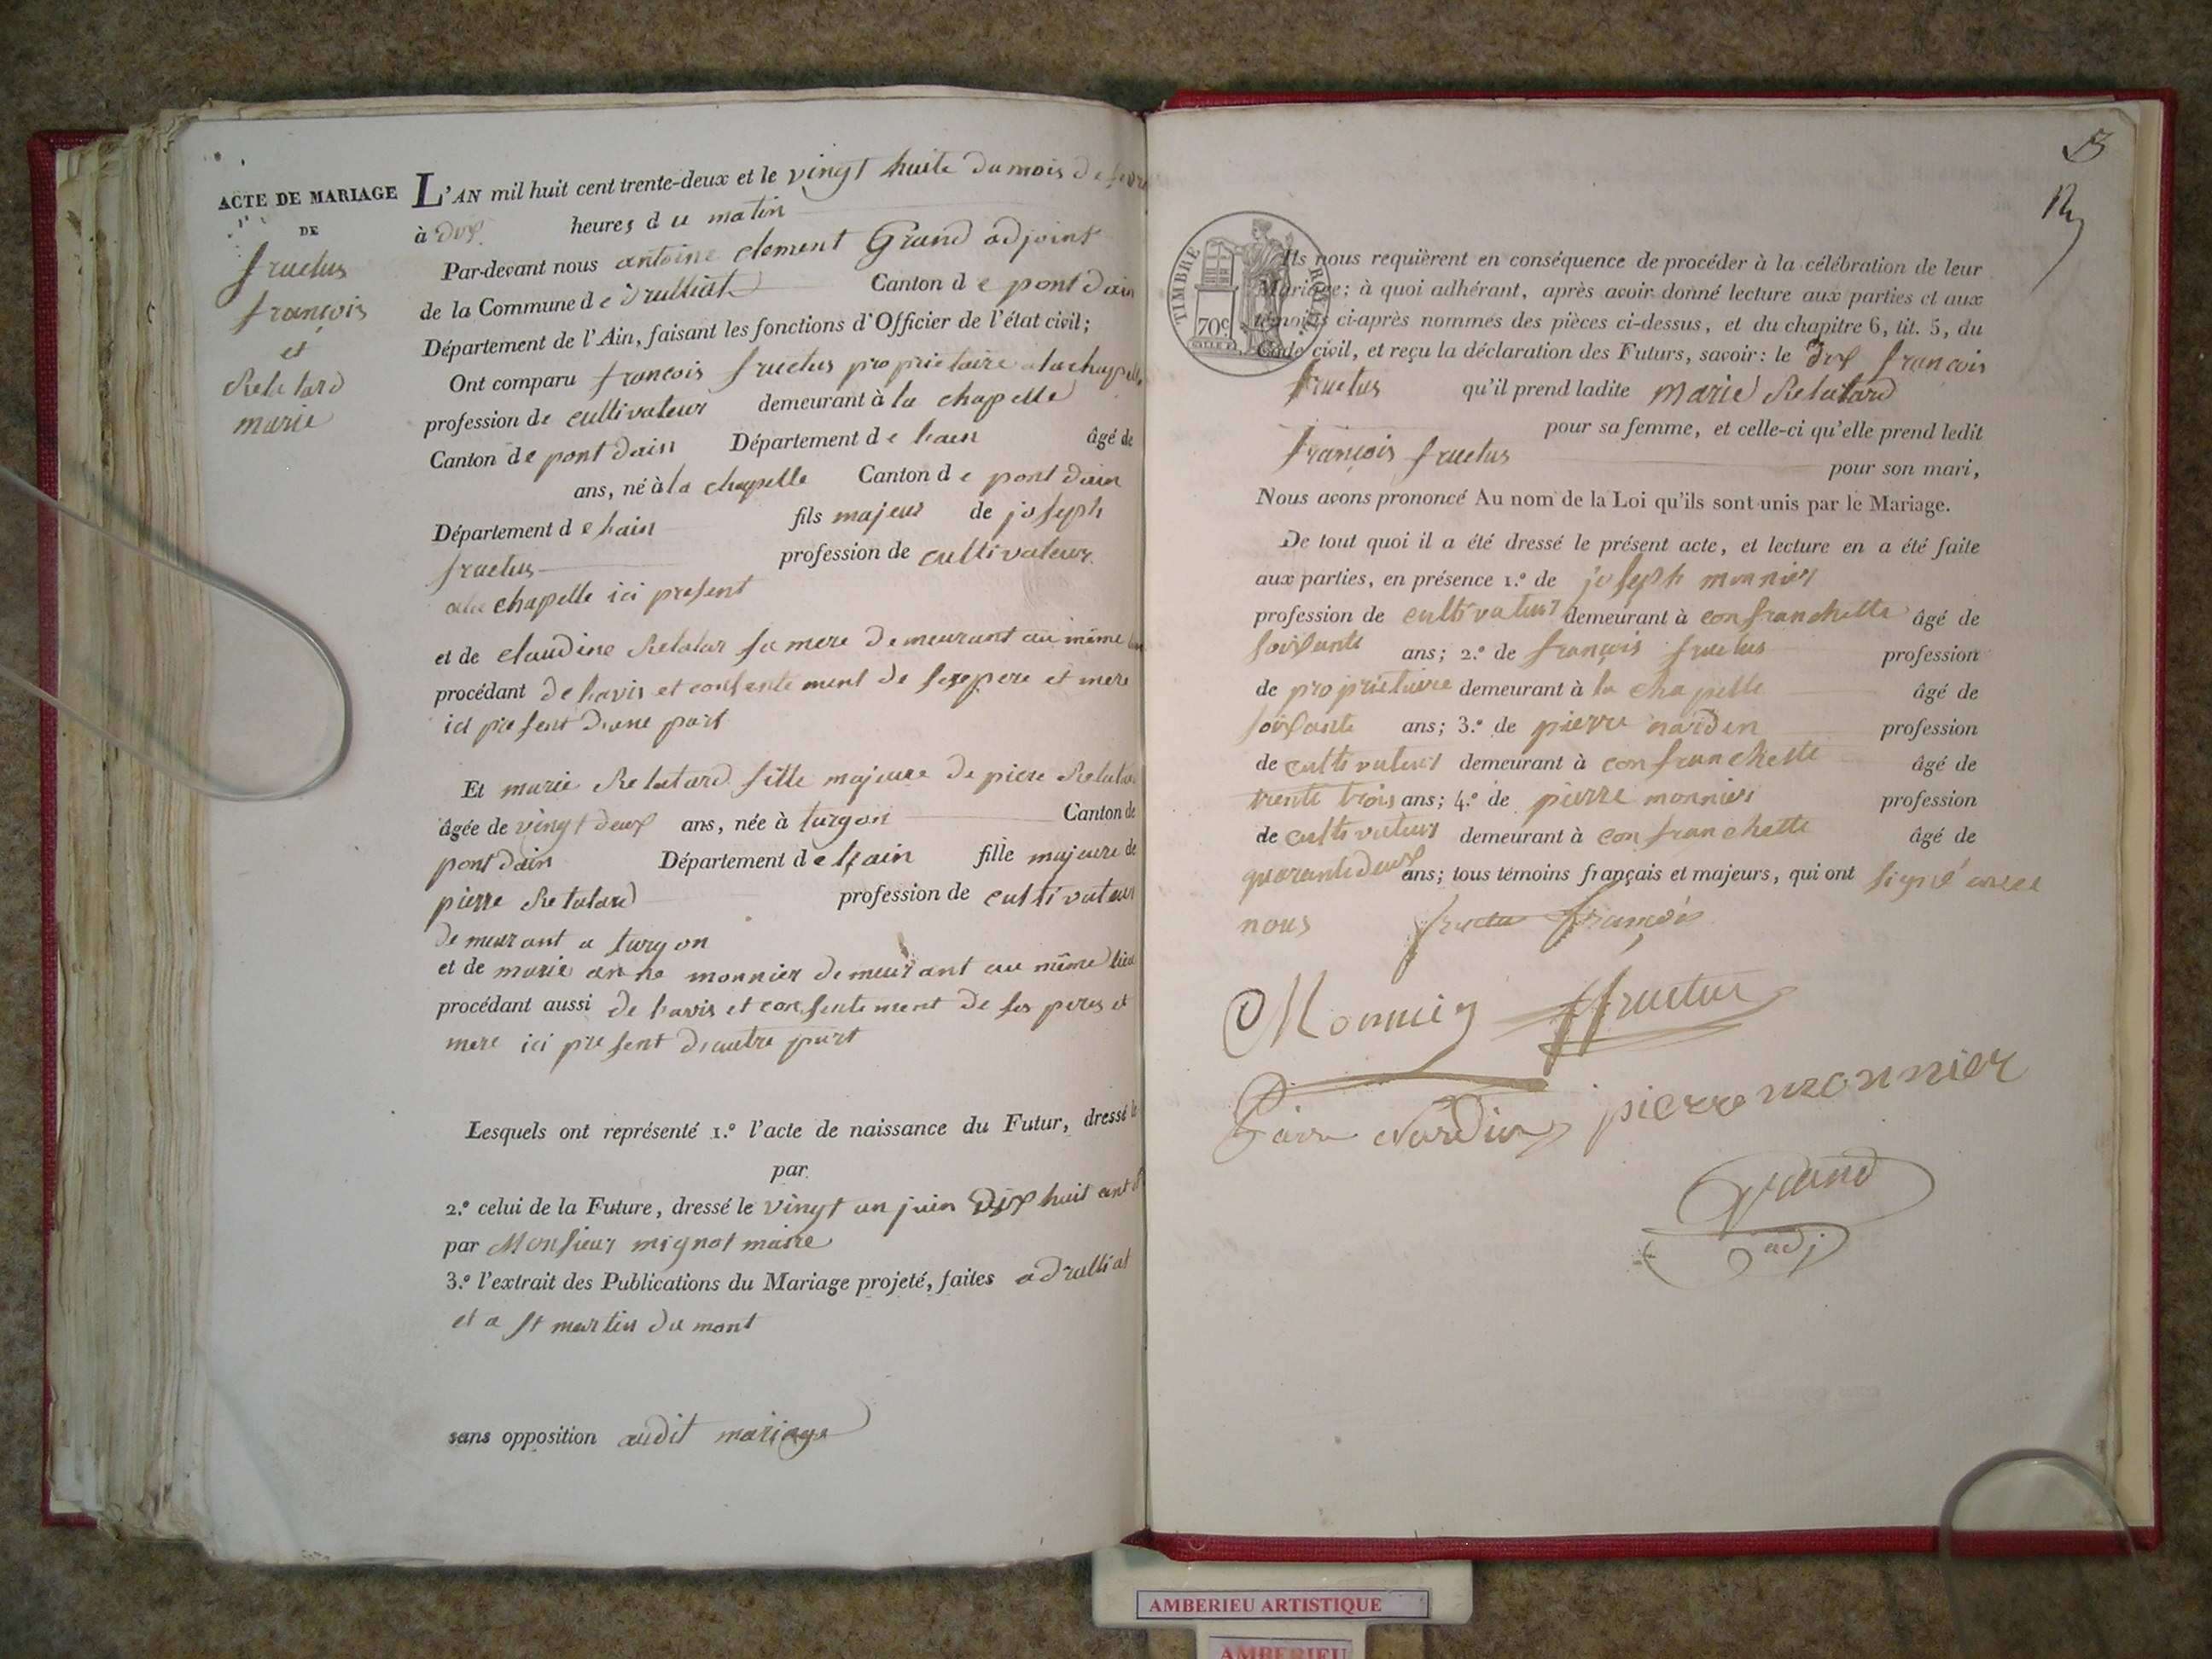 ACTE DE MARIAGE
DE
fructus
françois
et
Relutard
marie
L'AN mil huit cent trente-deux et le vingt huite du mois de
à dix heures du matin
Par-devant nous antoine clement Grand adjoint
de la Commune de druilliat Canton de pont dain
Département de l'Ain, faisant les fonctions d'Officier de l'état civil;
Ont comparu francois fructus proprietaire a la chapelle
profession de cultivateur demeurant à la chapelle
Canton de pont dain Département de hain âgé de
ans, né à la chapelle Canton de pont dain
Département de hain fils majeur de joseph
fructus profession de cultivateur
a la chapelle ici present
et de claudine Relutar sa mere demeurant au même
procédant de havis et consentement de pere et mere
ici present dune part
Et marie Relutard fille majeure de piere
âgée de vingt deux ans, née à turgon Canton de
pont dain Département de hain fille majeure de
pierre Relutard profession de cultivateur
demeurant a turgon
et de marie anne monnier demeurant au même lieu
procédant aussi de havis et consentement de ses peres et
mere ici present dautre part
Lesquels ont représenté 1.º l'acte de naissance du Futur, dressé le
par
2.º celui de la Future, dressé le vingt un juin dix huit cent
par Monsieur mignot maire
3.º l'extrait des Publications du Mariage projeté, faites a drulliat
et a st martin du mont
sans opposition audit mariage
13
TIMBRE ROYAL
70c
Ils nous requièrent en conséquence de procéder à la célébration de leur
Mariage; à quoi adhérant, après avoir donné lecture aux parties et aux
témoins ci-après nommés des pièces ci-dessus, et du chapitre 6, tit. 5, du
Code civil, et reçu la déclaration des Futurs, savoir: le dix francois
fructus qu'il prend ladite marie Relutard
pour sa femme, et celle-ci qu'elle prend ledit
françois fructus pour son mari,
Nous avons prononcé Au nom de la Loi qu'ils sont unis par le Mariage.
De tout quoi il a été dressé le présent acte, et lecture en a été faite
aux parties, en présence 1.º de joseph monnier
profession de cultivateur demeurant à confranchette âgé de
soixante ans; 2.º de françois fructus profession
de proprietaire demeurant à la chapelle âgé de
soixante ans; 3.º de pierre nardin profession
de cultivateur demeurant à confranchette âgé de
trente trois ans; 4.º de pierre monnier profession
de cultivateur demeurant à confranchette âgé de
quarante deux ans; tous témoins français et majeurs, qui ont signé avec
nous fructus françois
Monnier fructus
Pierre Nardin pierre monnier
Grand
adj
AMBERIEU ARTISTIQUE
AMBERIEU